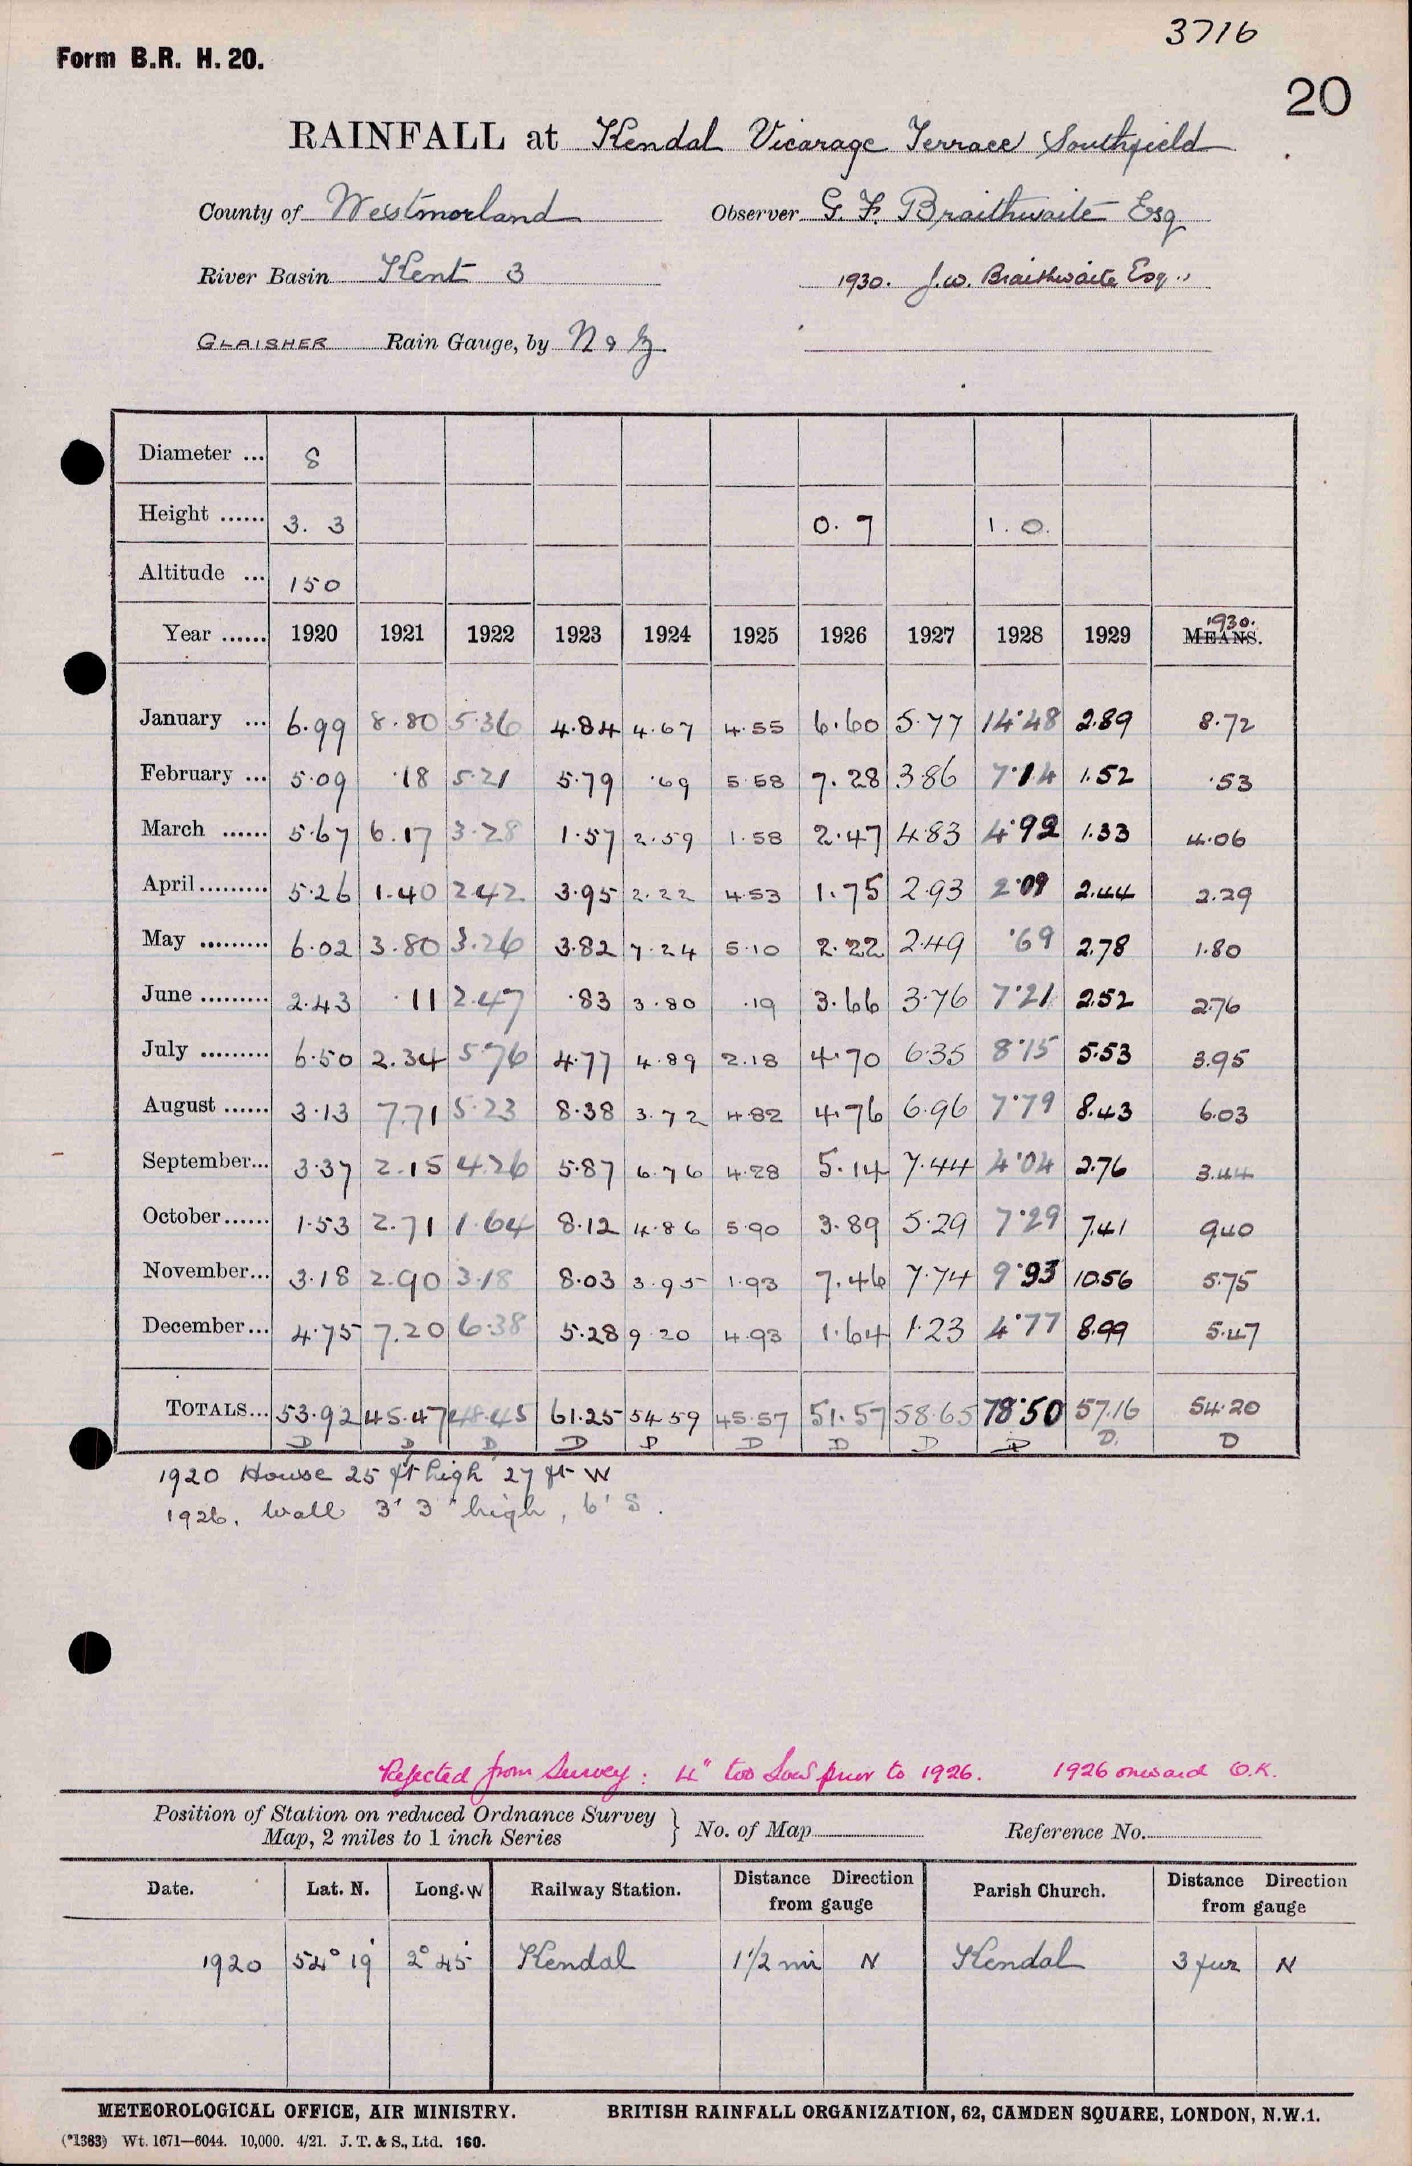 3716
Form B.R. H. 20.
20
RAINFALL at Kendal Vicarage Terrace Southfield
County of Westmorland Observer G. F. Braithwaite Esq
River Basin Kent 3 1930. J.W. Braithwaite Esq
GLAISHER Rain Gauge, by N & Z
Diameter ... 8
Height ...... 3. 3 0. 7 1. 0.
Altitude ... 150
1930.
Year ...... 1920 1921 1922 1923 1924 1925 1926 1927 1928 1929 MEANS.
January ... 6.99 8.80 5.36 4.84 4.67 4.55 6.60 5.77 14.48 2.89 8.72
February ... 5.09 .18 5.21 5.79 .69 5.58 7.28 3.86 7.14 1.52 .53
March ...... 5.67 6.17 3.28 1.57 2.59 1.58 2.47 4.83 4.92 1.33 4.06
April ......... 5.26 1.40 2.42 3.95 2.22 4.53 1.75 2.93 2.09 2.44 2.29
May ......... 6.02 3.80 3.26 3.82 7.24 5.10 2.22 2.49 .69 2.78 1.80
June ......... 2.43 .11 2.47 .83 3.80 .19 3.66 3.76 7.21 2.52 2.76
July ......... 6.50 2.34 5.76 4.77 4.89 2.18 4.70 6.35 8.15 5.53 3.95
August ...... 3.13 7.71 5.23 8.38 3.72 4.82 4.76 6.96 7.79 8.43 6.03
September... 3.37 2.15 4.26 5.87 6.76 4.28 5.14 7.44 4.04 2.76 3.44
October...... 1.53 2.71 1.64 8.12 4.86 5.90 3.89 5.29 7.29 7.41 9.40
November... 3.18 2.90 3.18 8.03 3.95 1.93 7.46 7.74 9.93 10.56 5.75
December... 4.75 7.20 6.38 5.28 9.20 4.93 1.64 1.23 4.77 8.99 5.47
TOTALS... 53.92 45.47 48.45 61.25 54.59 45.57 51.57 58.65 78.50 57.16 54.20
D D D D D D D D D D. D
1920 House 25 ft high 27 ft W
1926. Wall 3' 3" high, 6' S.
Rejected from Survey: 4" too low prior to 1926. 1926 onward O.K.
Position of Station on reduced Ordnance Survey Map, 2 miles to 1 inch Series } No. of Map Reference No.
Date. Lat. N. Long. W Railway Station. Distance Direction from gauge Parish Church. Distance Direction from gauge
1920 54° 19' 2° 45' Kendal 1 1/2 mi N Kendal 3 fur N
METEOROLOGICAL OFFICE, AIR MINISTRY. BRITISH RAINFALL ORGANIZATION, 62, CAMDEN SQUARE, LONDON, N.W.1.
(*1383) Wt. 1671—6044. 10,000. 4/21. J. T. & S., Ltd. 160.